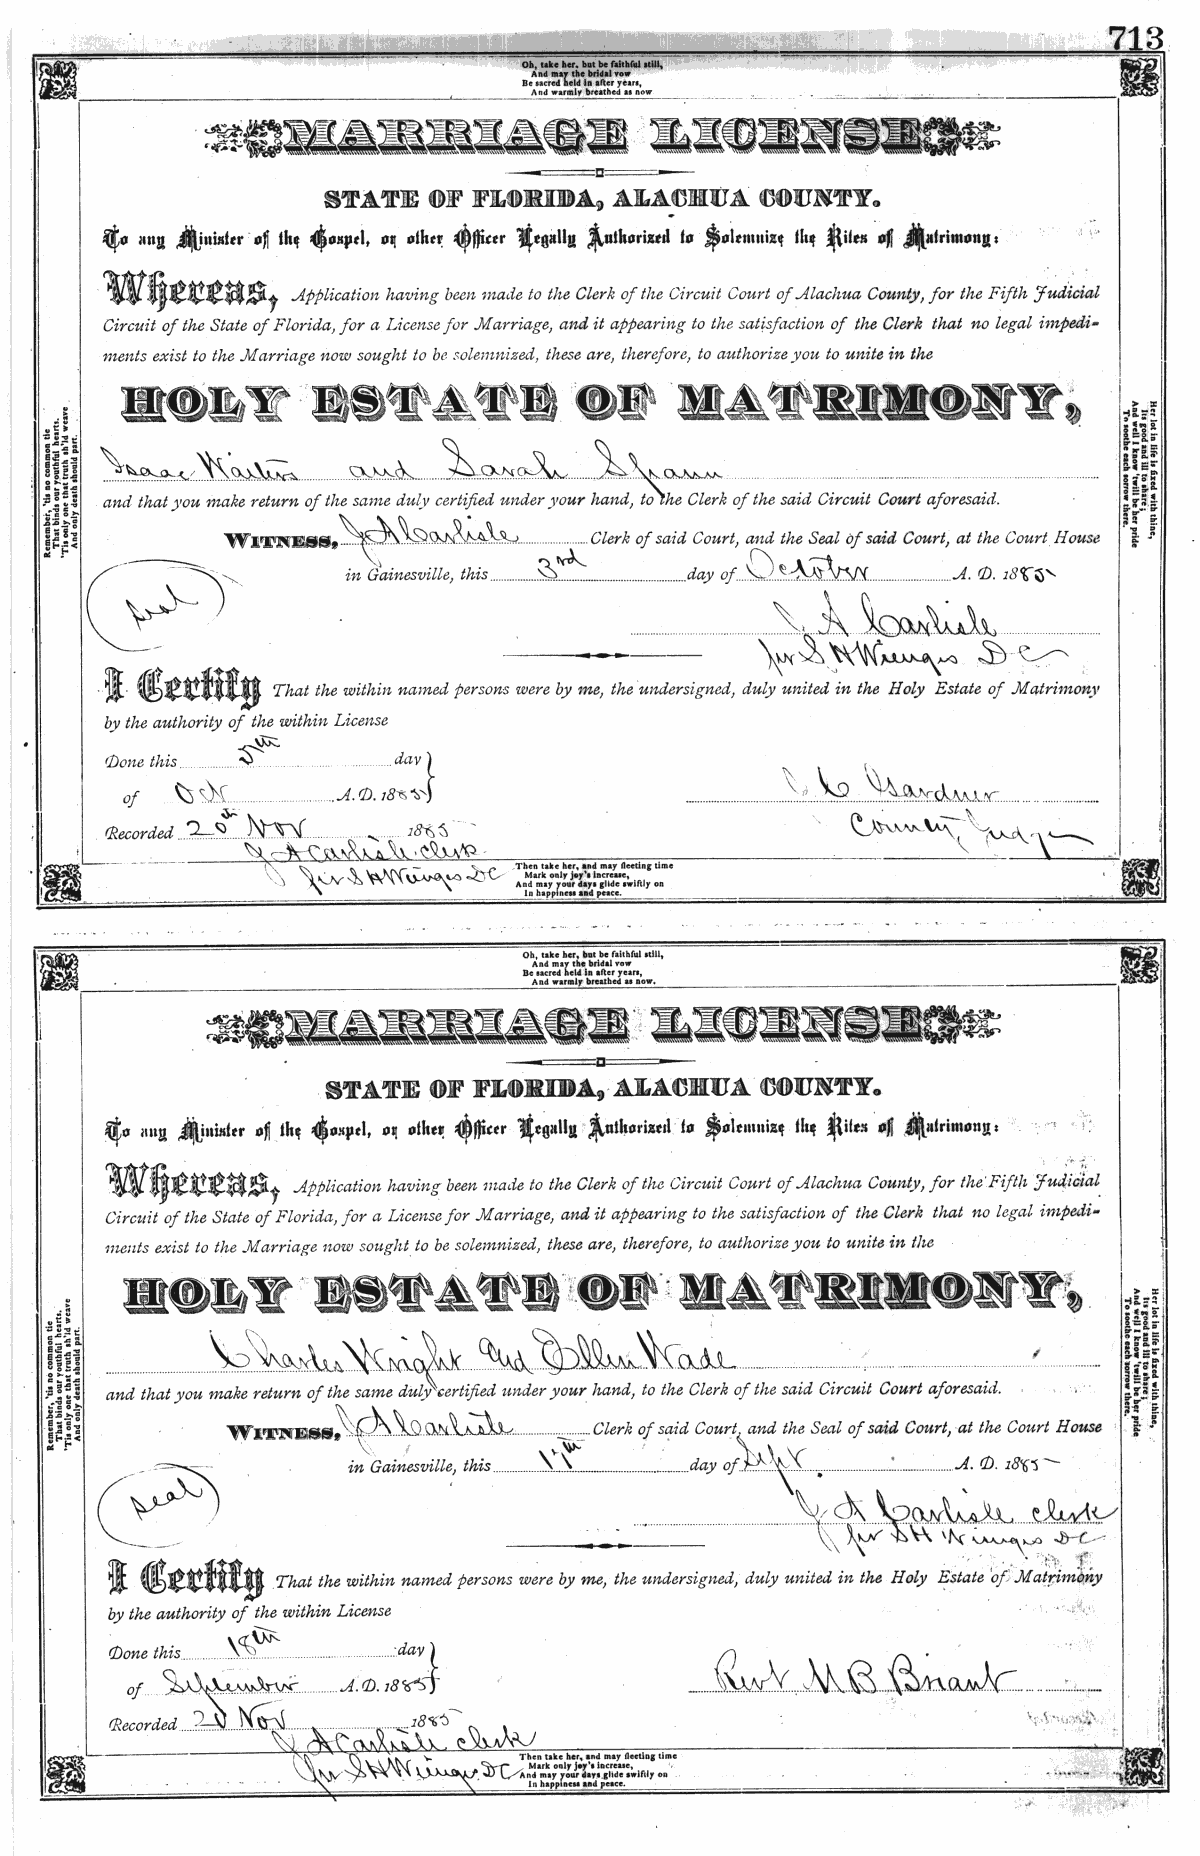 713
Oh, take her, but be faithful still,
And may the bridal vow
Be sacred held in after years,
And warmly breathed as now
MARRIAGE LICENSE
STATE OF FLORIDA, ALACHUA COUNTY.
To any Minister of the Gospel, or other Officer Legally Authorized to Solemnize the Rites of Matrimony:
Whereas, Application having been made to the Clerk of the Circuit Court of Alachua County, for the Fifth Judicial
Circuit of the State of Florida, for a License for Marriage, and it appearing to the satisfaction of the Clerk that no legal impedi-
ments exist to the Marriage now sought to be solemnized, these are, therefore, to authorize you to unite in the
HOLY ESTATE OF MATRIMONY,
Isaac Waiters and Sarah Spann
and that you make return of the same duly certified under your hand, to the Clerk of the said Circuit Court aforesaid.
WITNESS, J A Carlisle Clerk of said Court, and the Seal of said Court, at the Court House
in Gainesville, this 3rd day of October A. D. 1885
Seal
J A Carlisle
per S H Wienges D C
I Certify That the within named persons were by me, the undersigned, duly united in the Holy Estate of Matrimony
by the authority of the within License
Done this 5th day
of Oct A. D. 1885
J C Gardner
Recorded 20th Nov 1885
County Judge
J A Carlisle clerk
per S H Wienges D C
Then take her, and may fleeting time
Mark only joy's increase,
And may your days glide swiftly on
In happiness and peace.
Remember, 'tis no common tie
That binds our youthful hearts.
'Tis only one that truth sh'ld weave
And only death should part.
Her lot in life is fixed with thine,
Its good and ill to share;
And well I know 'twill be her pride
To soothe each sorrow there.
Oh, take her, but be faithful still,
And may the bridal vow
Be sacred held in after years,
And warmly breathed as now.
MARRIAGE LICENSE
STATE OF FLORIDA, ALACHUA COUNTY.
To any Minister of the Gospel, or other Officer Legally Authorized to Solemnize the Rites of Matrimony:
Whereas, Application having been made to the Clerk of the Circuit Court of Alachua County, for the Fifth Judicial
Circuit of the State of Florida, for a License for Marriage, and it appearing to the satisfaction of the Clerk that no legal impedi-
ments exist to the Marriage now sought to be solemnized, these are, therefore, to authorize you to unite in the
HOLY ESTATE OF MATRIMONY,
Charles Wright and Ellen Wade
and that you make return of the same duly certified under your hand, to the Clerk of the said Circuit Court aforesaid.
WITNESS, J A Carlisle Clerk of said Court, and the Seal of said Court, at the Court House
in Gainesville, this 17th day of Sept. A. D. 1885
Seal
J A Carlisle clerk
per S H Wienges D C
I Certify That the within named persons were by me, the undersigned, duly united in the Holy Estate of Matrimony
by the authority of the within License
Done this 18th day
of September A. D. 1885
Revt M B Briant
Recorded 20 Nov 1885
J A Carlisle clerk
per S H Wienges D C
Then take her, and may fleeting time
Mark only joy's increase,
And may your days glide swiftly on
In happiness and peace.
Remember, 'tis no common tie
That binds our youthful hearts.
'Tis only one that truth sh'ld weave
And only death should part.
Her lot in life is fixed with thine,
Its good and ill to share;
And well I know 'twill be her pride
To soothe each sorrow there.